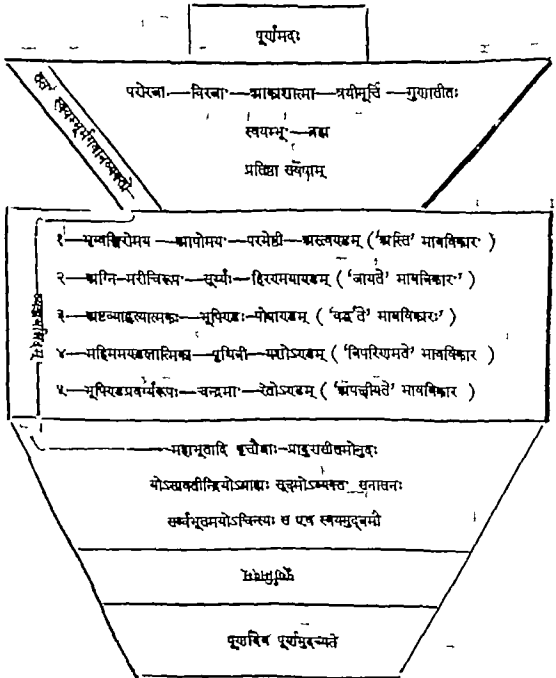 पूर्णमदः
ततः स्वयम्भूर्भगवानव्यक्तो
परोरजाः—विरजाः—आकाशात्मा—त्रयीमूर्त्ति—गुणातीतः
स्वयम्भूः—ब्रह्म
प्रतिष्ठा सर्वेषाम्
१—भृग्वङ्गिरोमय—आपोमयः—परमेष्ठी—अस्त्वण्डम् ('अस्ति' भावविकारः)
२—अग्नि-मरीचिरूपः—सूर्य्यः—हिरण्मयाण्डम् ('जायते' भावविकारः)
३—भूपिण्डः—पोषाण्डम् ('वर्द्धते' भावविकारः)
४—महिममण्डलात्मिका—पृथिवी—यशोऽण्डम् ('विपरिणमते' भावविकार)
५—भूपिण्डप्रवर्ग्यरूपः—चन्द्रमाः—रेतोऽण्डम् ('अपक्षीयते' भावविकार)
महाभूतादि वृत्तौजाः—प्रादुरासीत्तमोनुदः
योऽतीन्द्रियोऽग्राह्यः सूक्ष्मोऽव्यक्तः सनातनः
सर्व्वभूतमयोऽचिन्त्यः स एष स्वयमुद्बभौ
पूर्णमिदम्
पूर्णात् पूर्णमुदच्यते